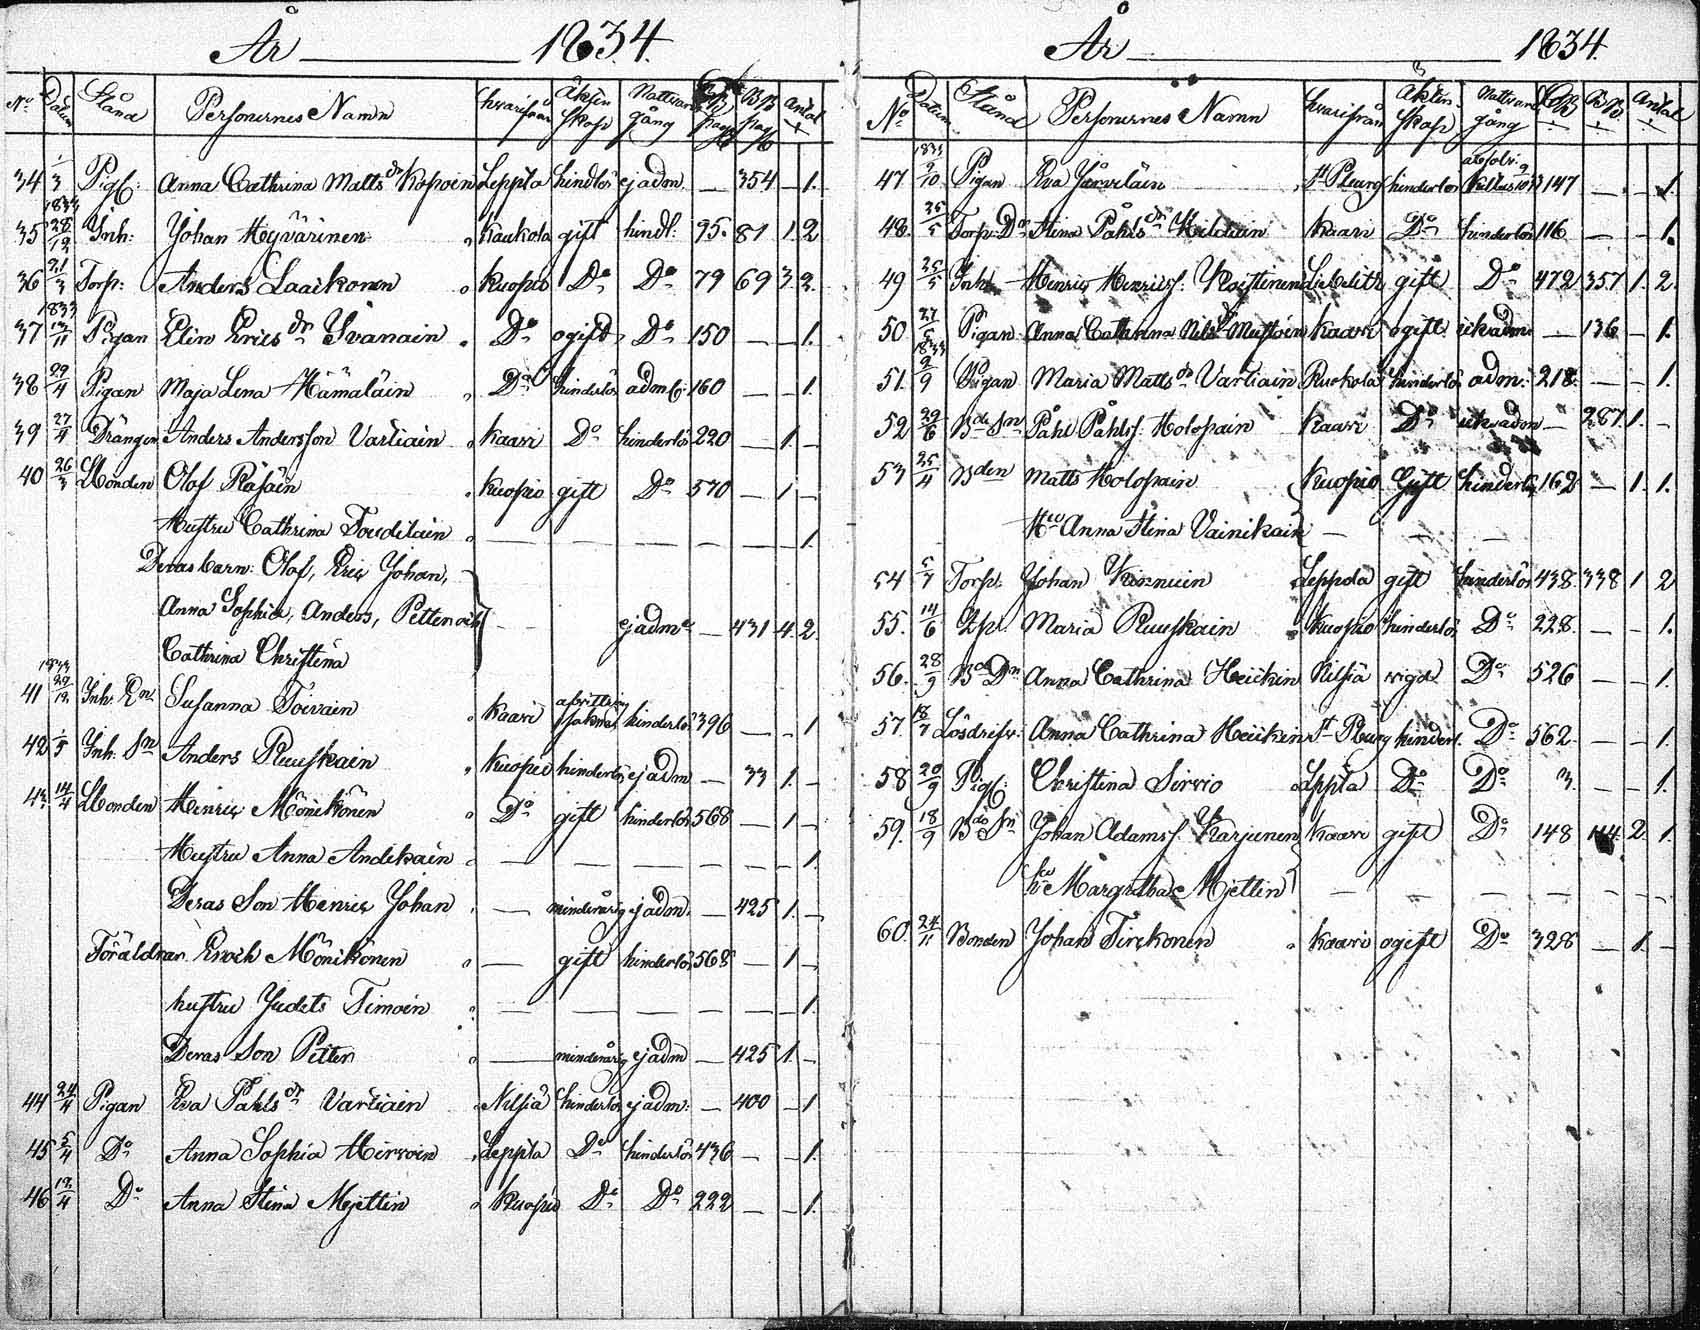 År 1834.
No Datum Stånd Personernes Namn hvarifrån Äktenskap Nattvardsgång pag BB pag Antal
34 1/3 Pig: Anna Cathrina Matts dr Kopoin Leppla hindlös ej adm. — 354 — 1.
1833
35 28/12 Inh: Johan Hyvärinen Kaukola gift hindl: 95. 81 1 2
36 21/3 Torp: Anders Laaikonen Kuopio Do Do 79 69 3 2.
1833
37 13/11 Pigan Elin Erics dr Ivanain Do ogift Do 150 — — 1.
38 29/4 Pigan Maja Lena Hämäläin Do hinderlös adm 160 — — 1.
39 27/4 Drängen Anders Andersson Vartiain Kaavi Do hinderlös 220 — 1. —
40 26/3 Bonden Olof Räsäin Kuopio gift Do 570 — 1 —
Hustru Cathrina — — — — — — 1.
Deras barn: Olof, Eric Johan,
Anna Sophia, Anders, Petter och — — ej adm — 431 4. 2.
Cathrina Christina
1833
41 29/12 Inh: Susanna Toivain Kaavi hinderlös 396 — — 1
42 1/5 Inh: Sn Anders Ruuskain Kuopio hinderlös ej adm — 33 1. —
43 14/4 Bonden Henric Mönikönen Do gift hinderlös 568 — 1 —
Hustru Anna Andikain — — — — — — 1.
Deras Son Henric Johan — minderårig ej adm. — 425 1. —
Föräldrar Enoch Mönikönen — gift hinderlös 568 — 1 —
hustru Judets Timoin — — — — — — 1.
Deras Son Petter — minderårig ej adm — 425 1. —
44 24/4 Pigan Eva Påhls dr Vartiain Nilsiä hinderlös ej adm: — 400 — 1
45 5/4 Do Anna Sophia Hirvoin Leppla Do hinderlös 436 — — 1.
46 12/4 Do Anna Stina Mjettin Kuopio Do Do 222 — — 1.
År 1834.
No Datum Stånd Personernes Namn hvarifrån Äktenskap Nattvardsgång BB Antal
47 9/10 Pigan Eva Järveläin St Pburg hinderlös 147 — — 1
48 25/5 Torp: Do Stina Påhls dr Kaavi Do hinderlös 116 — — 1.
49 25/5 Inh: Henric Henrics. Koistinen Libelits gift Do 472 357 1. 2.
50 27/5 Pigan Anna Catharina Nils dr Mustoin Kaavi ogift ick adm — 136 — 1.
1833
51. 9/9 Pigan Maria Matts dr Vartiain Ruokola hinderlös adm: 218. — — 1.
52 29/6 Bde Sn Påhl Påhls. Holopain Kaavi Do ick adm — 287 1. —
53 25/4 Bden Matts Holopain Kuopio Gift hinderlös 162 — 1. 1.
Hu Anna Stina Vainikain — — —
54 5/7 Torp: Johan Kinnuin Leppla gift hinderlös 438. 338 1 2
55. 14/6 Maria Ruuskain Kuopio hinderlös Do 228. — — 1.
56. 28/9 Bde Dr Anna Cathrina Heickin Nilsiä vigd Do 526 — — 1.
57. 18/7 Lösdrifv: Anna Cathrina Heickin St Pburg hinderl. Do 562 — — 1.
58 20/9 Pig: Christina Sirvio Leppla Do Do 3. — — 1.
59. 18/9 Bde Sn Johan Adams s. Karjunen Kaavi gift Do 148 144 2. 1.
hu Margretha Mjettin — — — — — — —
60. 24/11 Bonden Johan Tirckonen Kaavi ogift Do 328 — 1. —